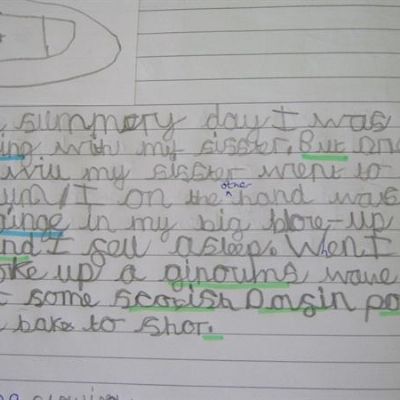 summory day I was
ing with my sisster. But one
my sisster went to
I on the other hand was
inge in my big blow-up
nd I fell asleep. When I
oke up a ginourms wave
some scotish Dorsin po
bake to shor.